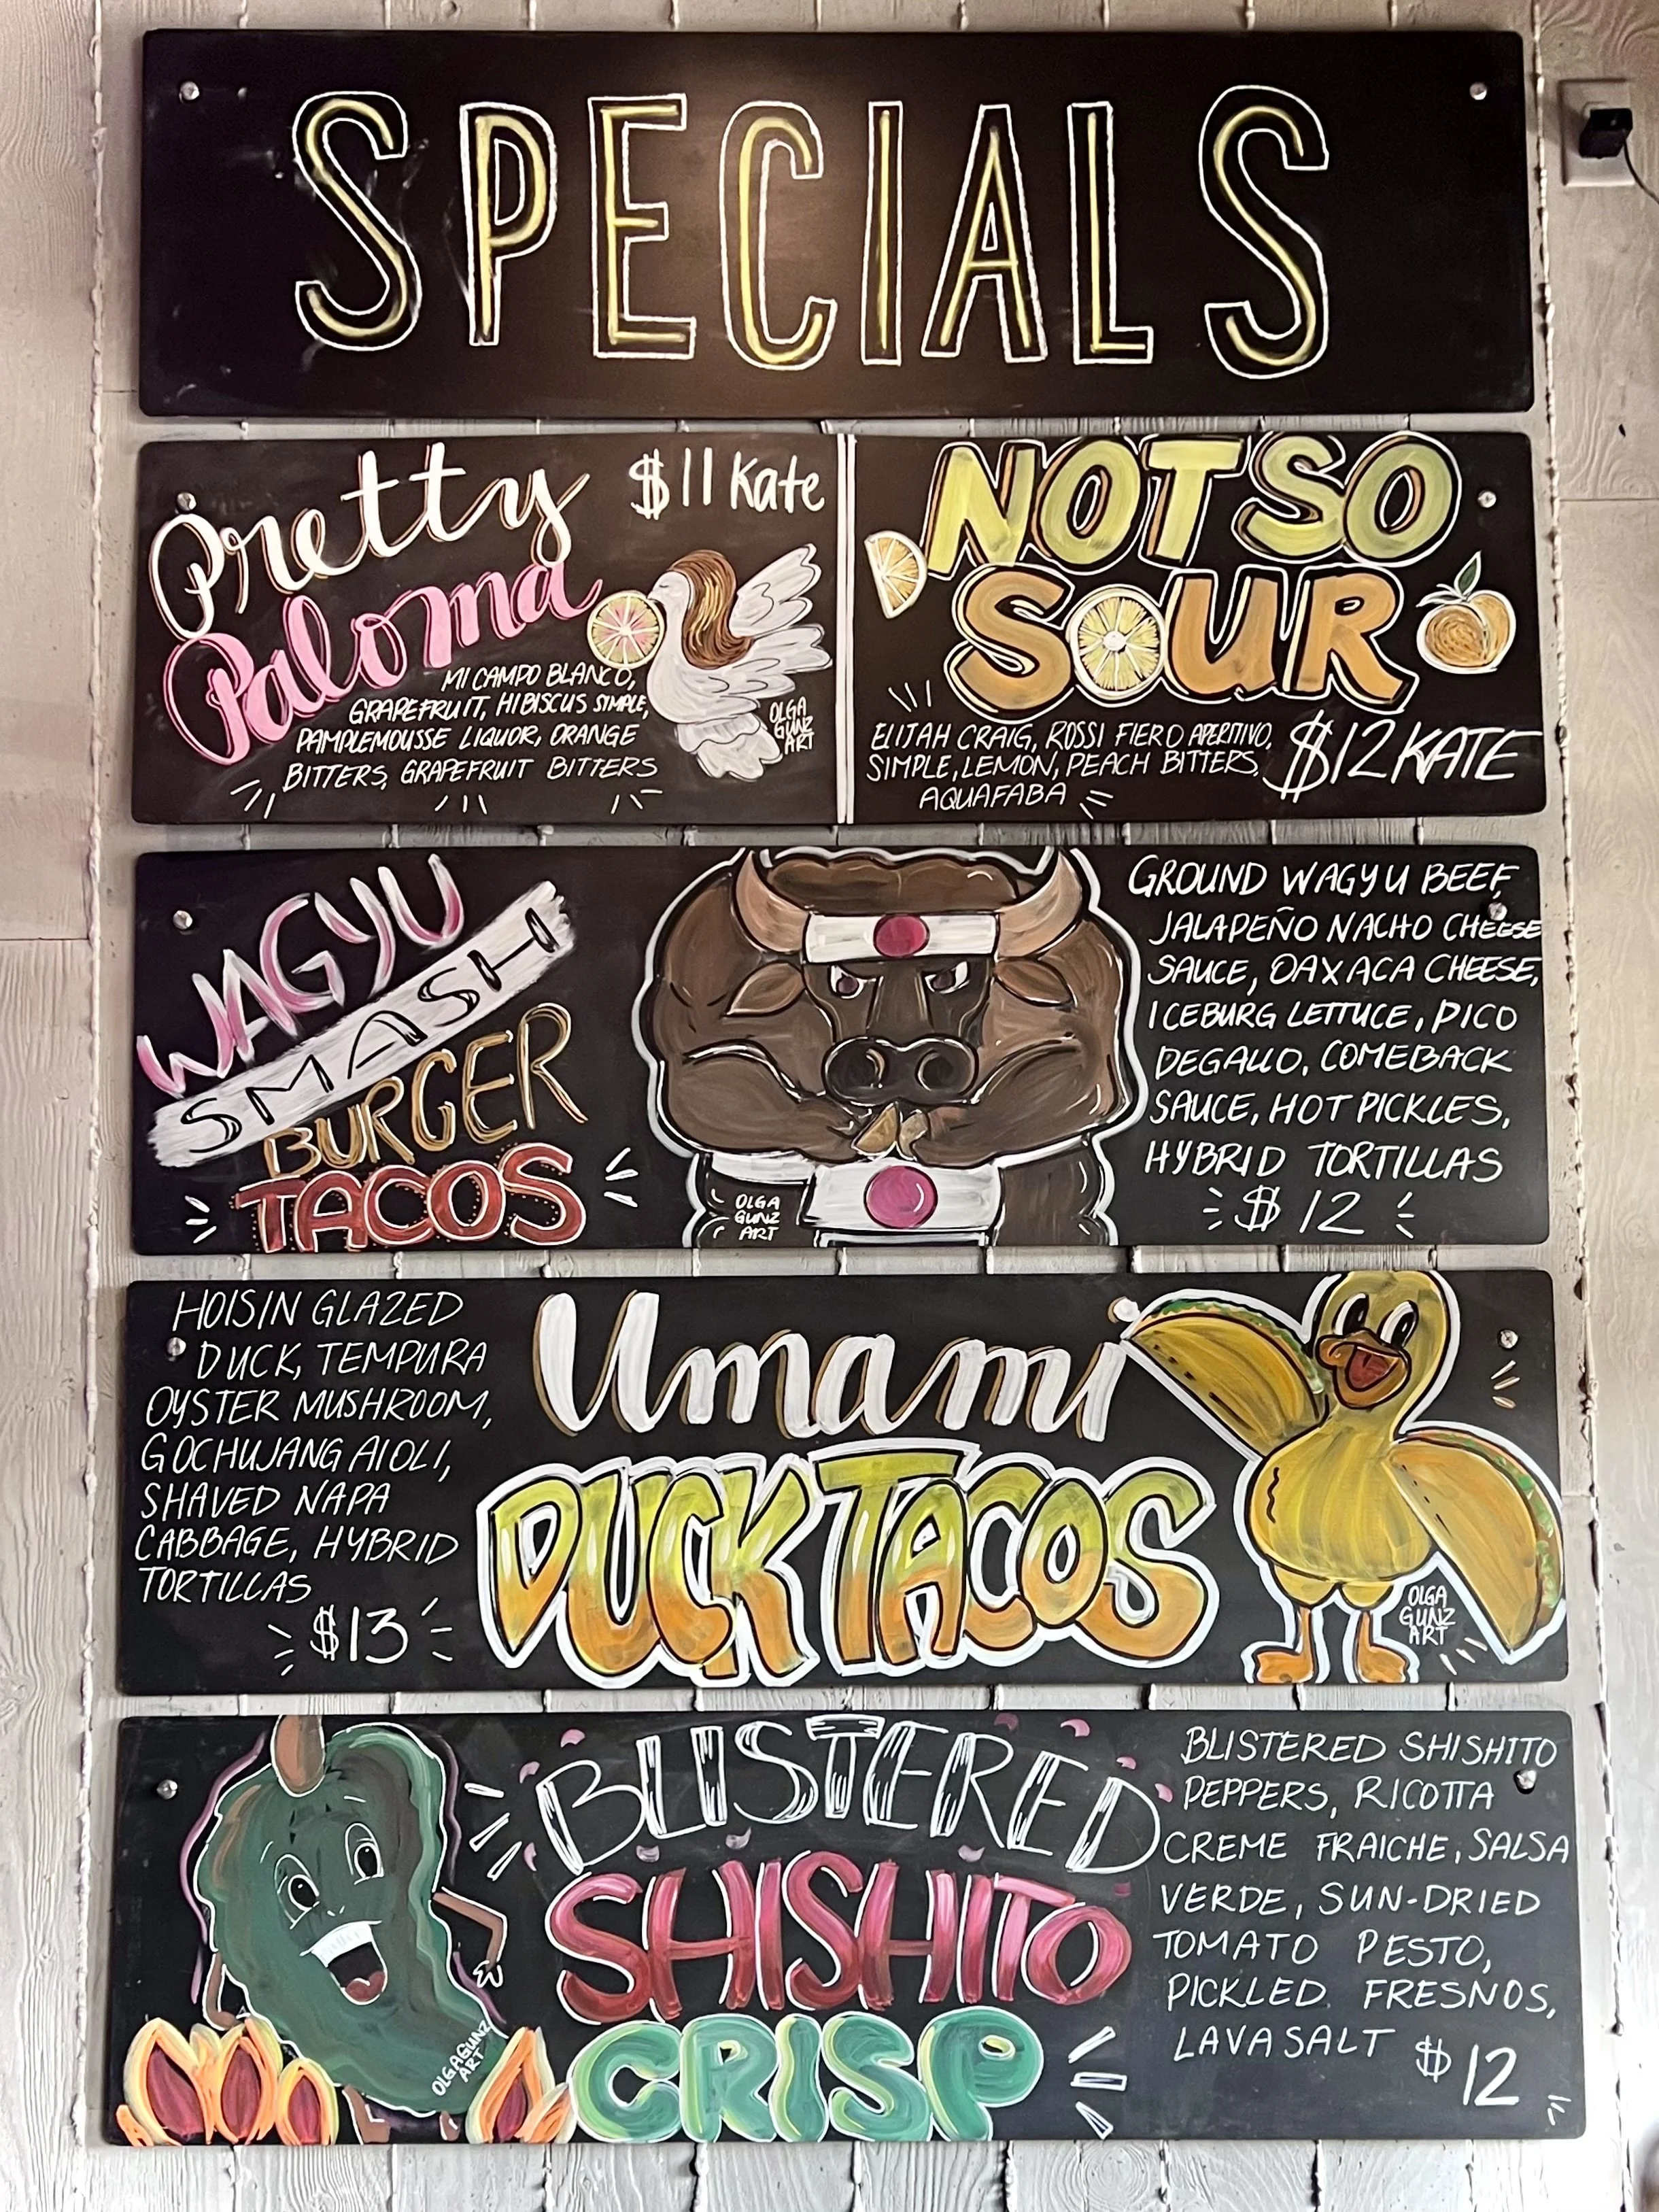 SPECIALS
Pretty
Paloma
$11 Kate
MI CAMPO BLANCO,
GRAPEFRUIT, HIBISCUS SIMPLE,
PAMPLEMOUSSE LIQUOR, ORANGE
BITTERS, GRAPEFRUIT BITTERS
OLGA
GUNZ
ART
NOT SO
SOUR
ELIJAH CRAIG, ROSSI FIERO APERITIVO,
SIMPLE, LEMON, PEACH BITTERS,
AQUAFABA
$12 KATE
WAGYU
SMASH
BURGER
TACOS
OLGA
GUNZ
ART
GROUND WAGYU BEEF,
JALAPEÑO NACHO CHEESE
SAUCE, OAXACA CHEESE,
ICEBURG LETTUCE, PICO
DEGALLO, COMEBACK
SAUCE, HOT PICKLES,
HYBRID TORTILLAS
$12
HOISIN GLAZED
DUCK, TEMPURA
OYSTER MUSHROOM,
GOCHUJANG AIOLI,
SHAVED NAPA
CABBAGE, HYBRID
TORTILLAS
$13
Umami
DUCK TACOS
OLGA
GUNZ
ART
BLISTERED
SHISHITO
CRISP
OLGAGUNZ
ART
BLISTERED SHISHITO
PEPPERS, RICOTTA
CREME FRAICHE, SALSA
VERDE, SUN-DRIED
TOMATO PESTO,
PICKLED FRESNOS,
LAVA SALT
$12